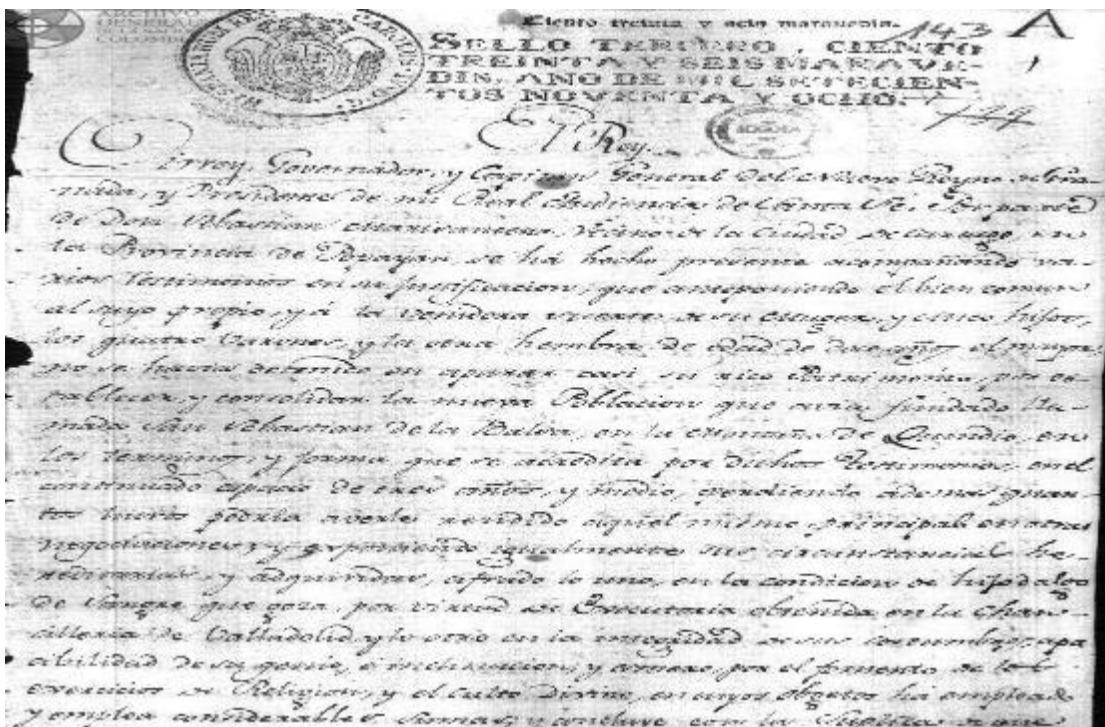 ARCHIVO
GENERAL
DE LA NACION
COLOMBIA
Ciento treinta y seis maravedis.
143
A
SELLO TERCERO, CIENTO
TREINTA Y SEIS MARAVE-
DIS, AÑO DE MIL SETECIEN-
TOS NOVENTA Y OCHO.
144
BOGOTA
El Rey.
Virrey, Governador, y Capitan General del Nuevo Reyno de Gra-
nada, y Presidente de mi Real Audiencia de Santa Fé. Por parte
de Don Sebastian Marisancena, vecino de la Ciudad de Cartago, en
la Provincia de Popayan, se há hecho presente acompañando va-
rios testimonios en su justificacion, que anteponiendo el bien comun
al suyo propio, y á la de su Muger, y cinco hijos,
los quatro Varones, y la otra hembra, de edad de doce años el mayor
no se havia detenido en apurar casi su rico Patrimonio, por es-
tablecer, y consolidar la nueva Poblacion que avia fundado lla-
mada San Sebastian de la Balsa, en la Montaña de Quindio, en
los terminos, y forma que se acredita por dichos testimonios, en el
continuado espacio de tres años, y medio, perdiendo ademas quan-
tos lucros podria averle rendido aquel mismo principal en otras
negociaciones; y exponiendo igualmente sus circunstancias he-
reditarias, y adquiridas, cifrado lo uno, en la condicion de hijodalgo
de Sangre que goza, por virtud de Executoria obtenida en la Chan-
cilleria de Valladolid, y lo otro en la integridad de sus costumbres, apa
cibilidad de su genio, é inclinacion, y conato, por el fomento de los
exercicios de Religion, y el Culto Divino, en cuyos objetos há empleado
y emplea considerables sumas; y concluye con la Suplica,